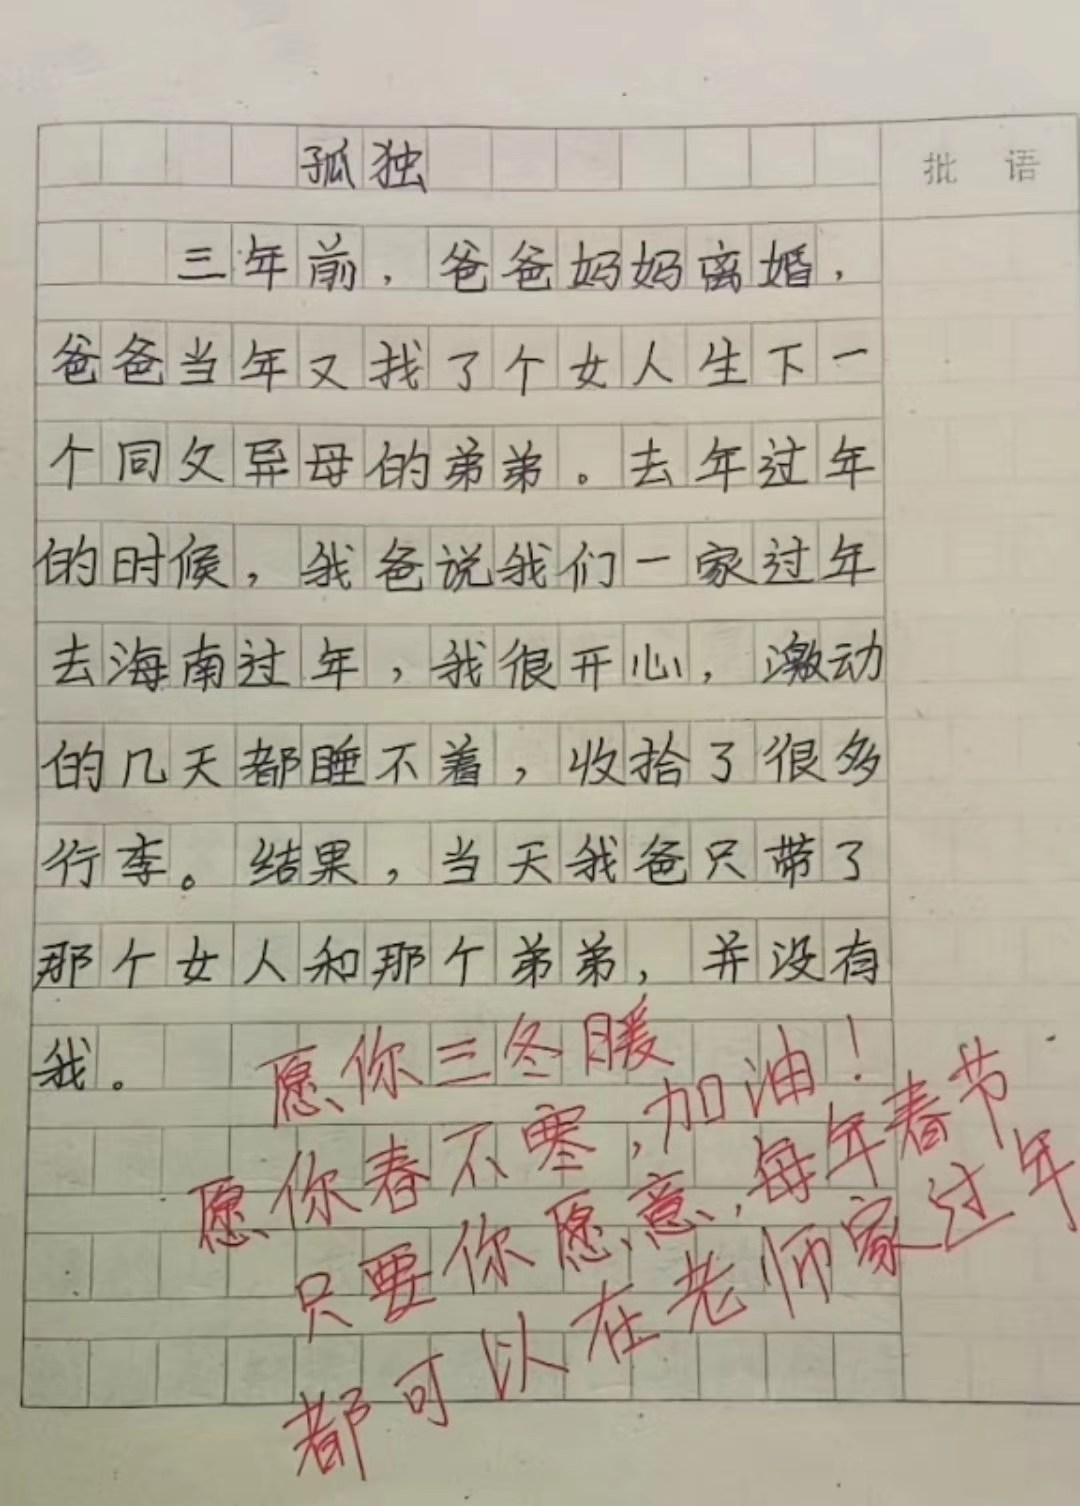 孤独
批 语
三年前，爸爸妈妈离婚，
爸爸当年又找了个女人生下一
个同父异母的弟弟。去年过年
的时候，我爸说我们一家过年
去海南过年，我很开心，激动
的几天都睡不着，收拾了很多
行李。结果，当天我爸只带了
那个女人和那个弟弟，并没有
我。
愿你三冬暖
愿你春不寒，加油！
只要你愿意，每年春节
都可以在老师家过年